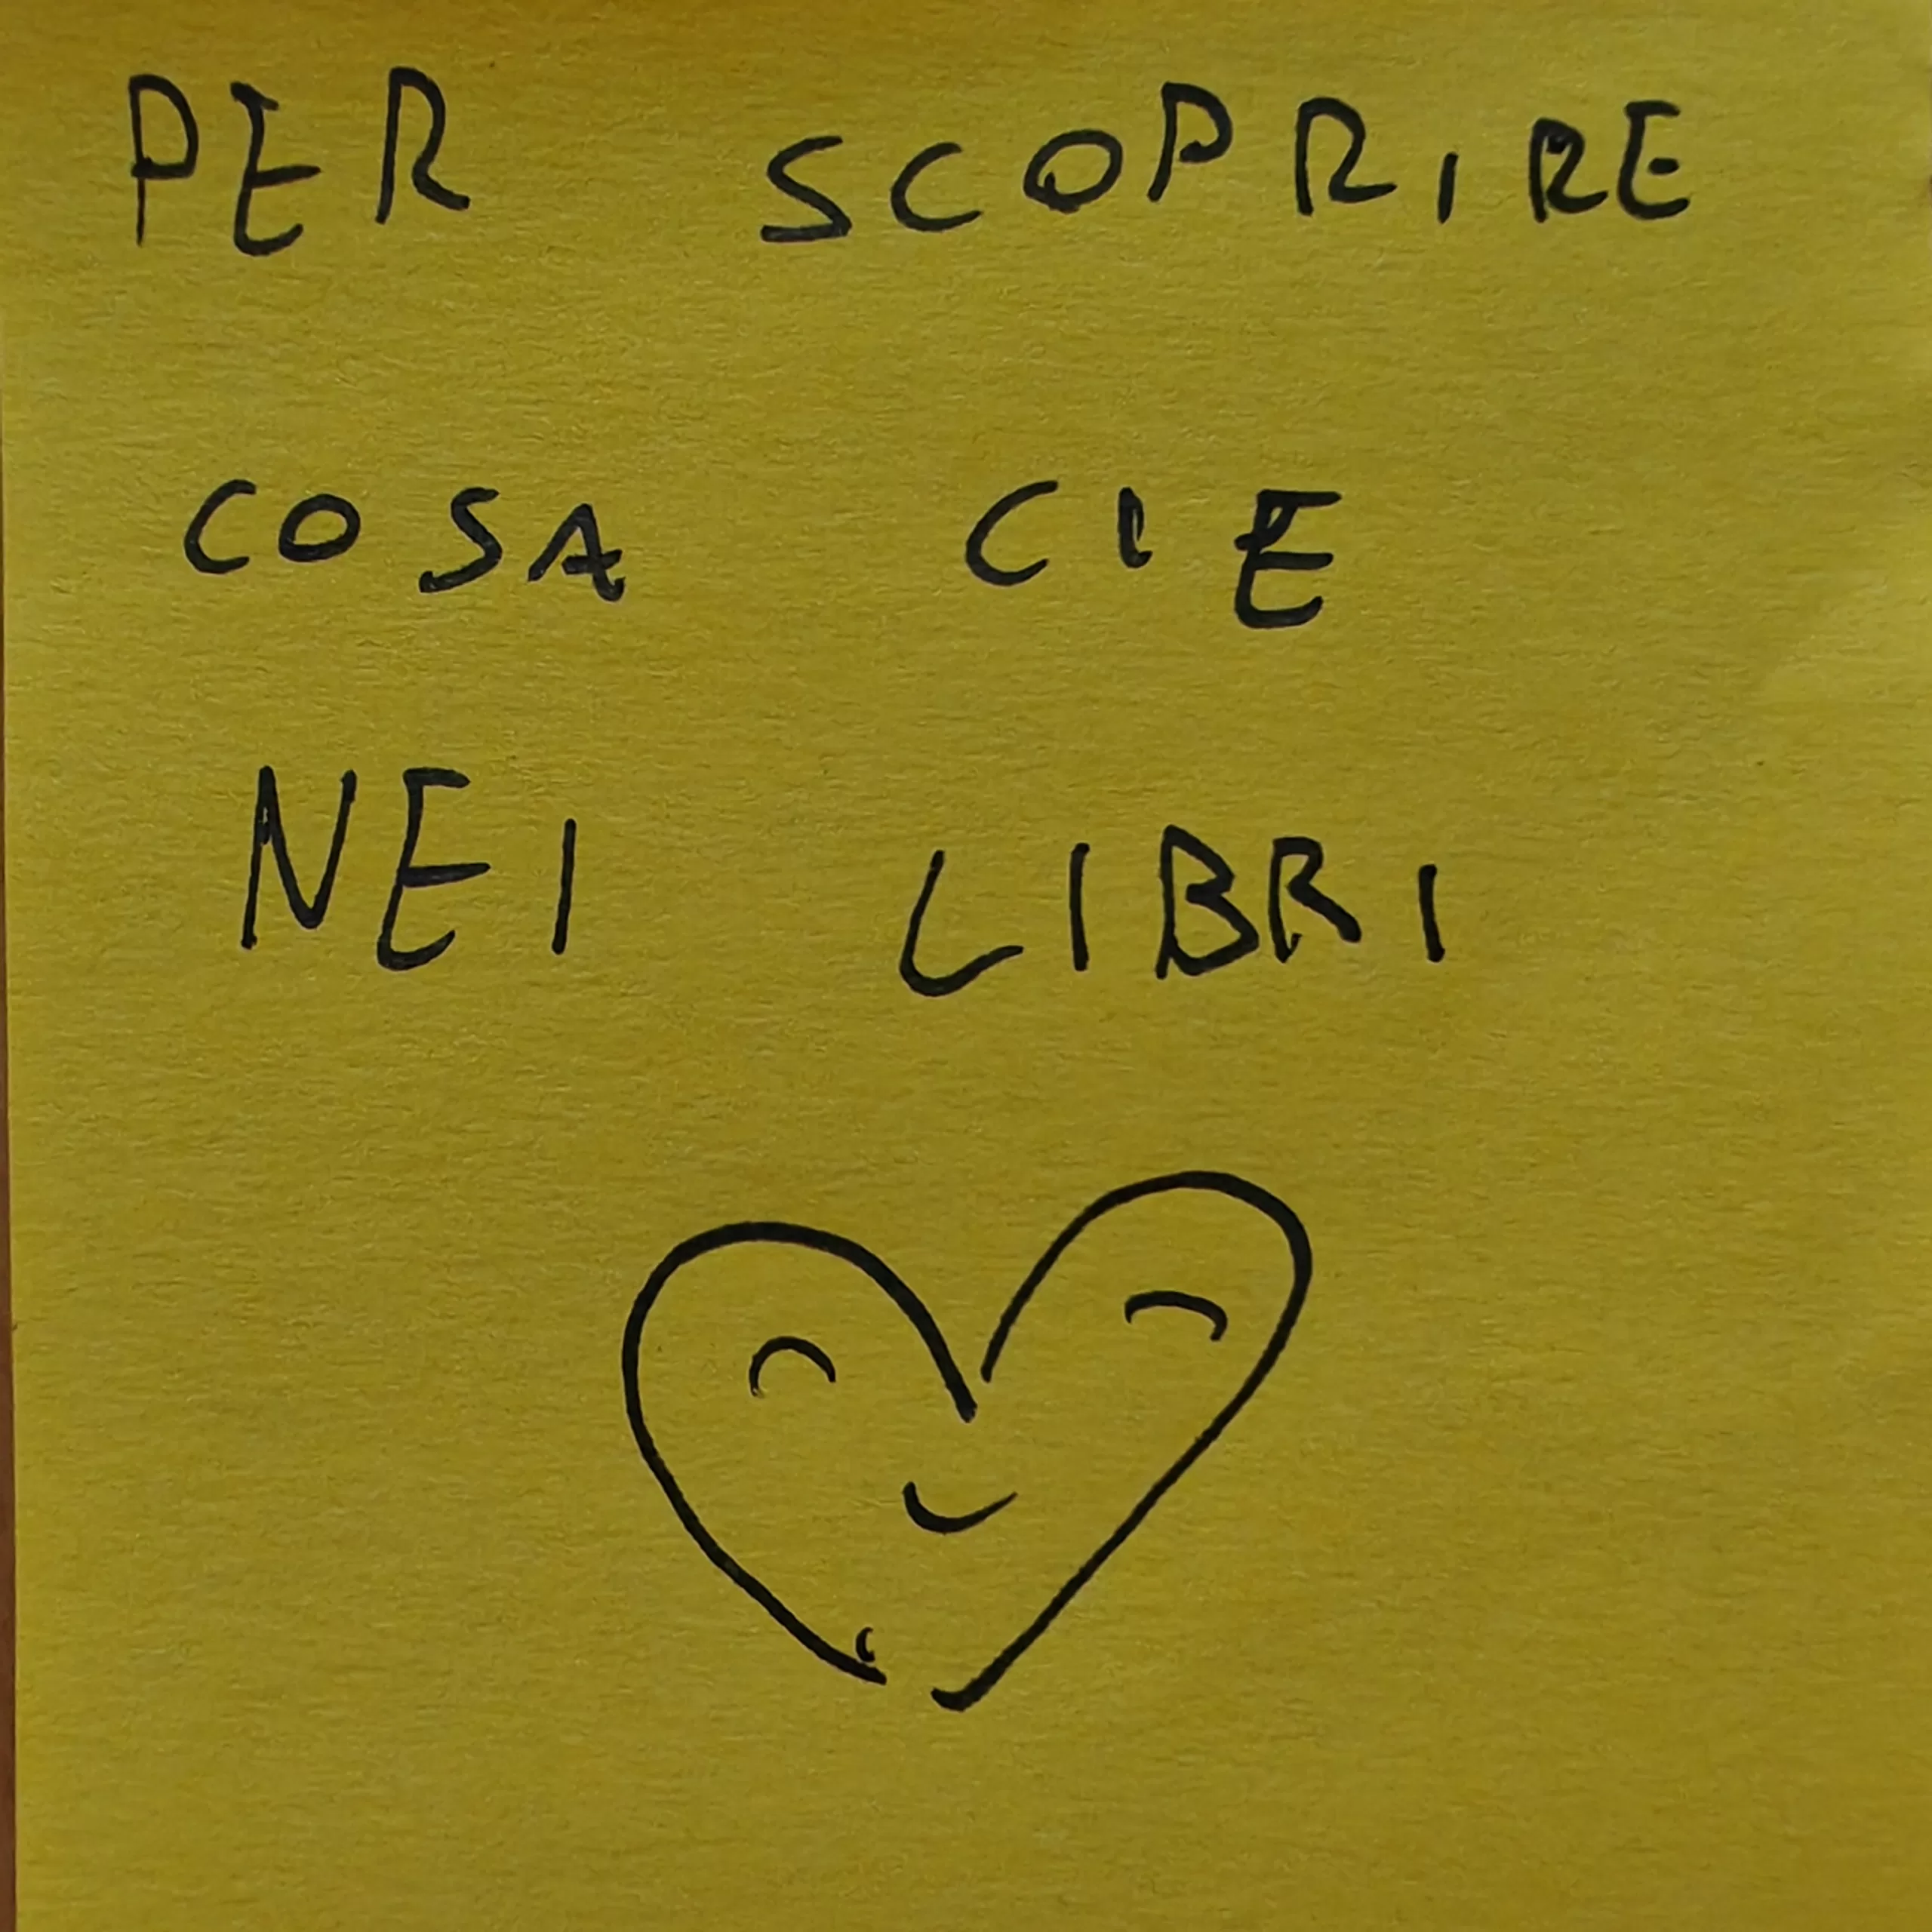 PER SCOPRIRE
COSA CIE
NEI LIBRI